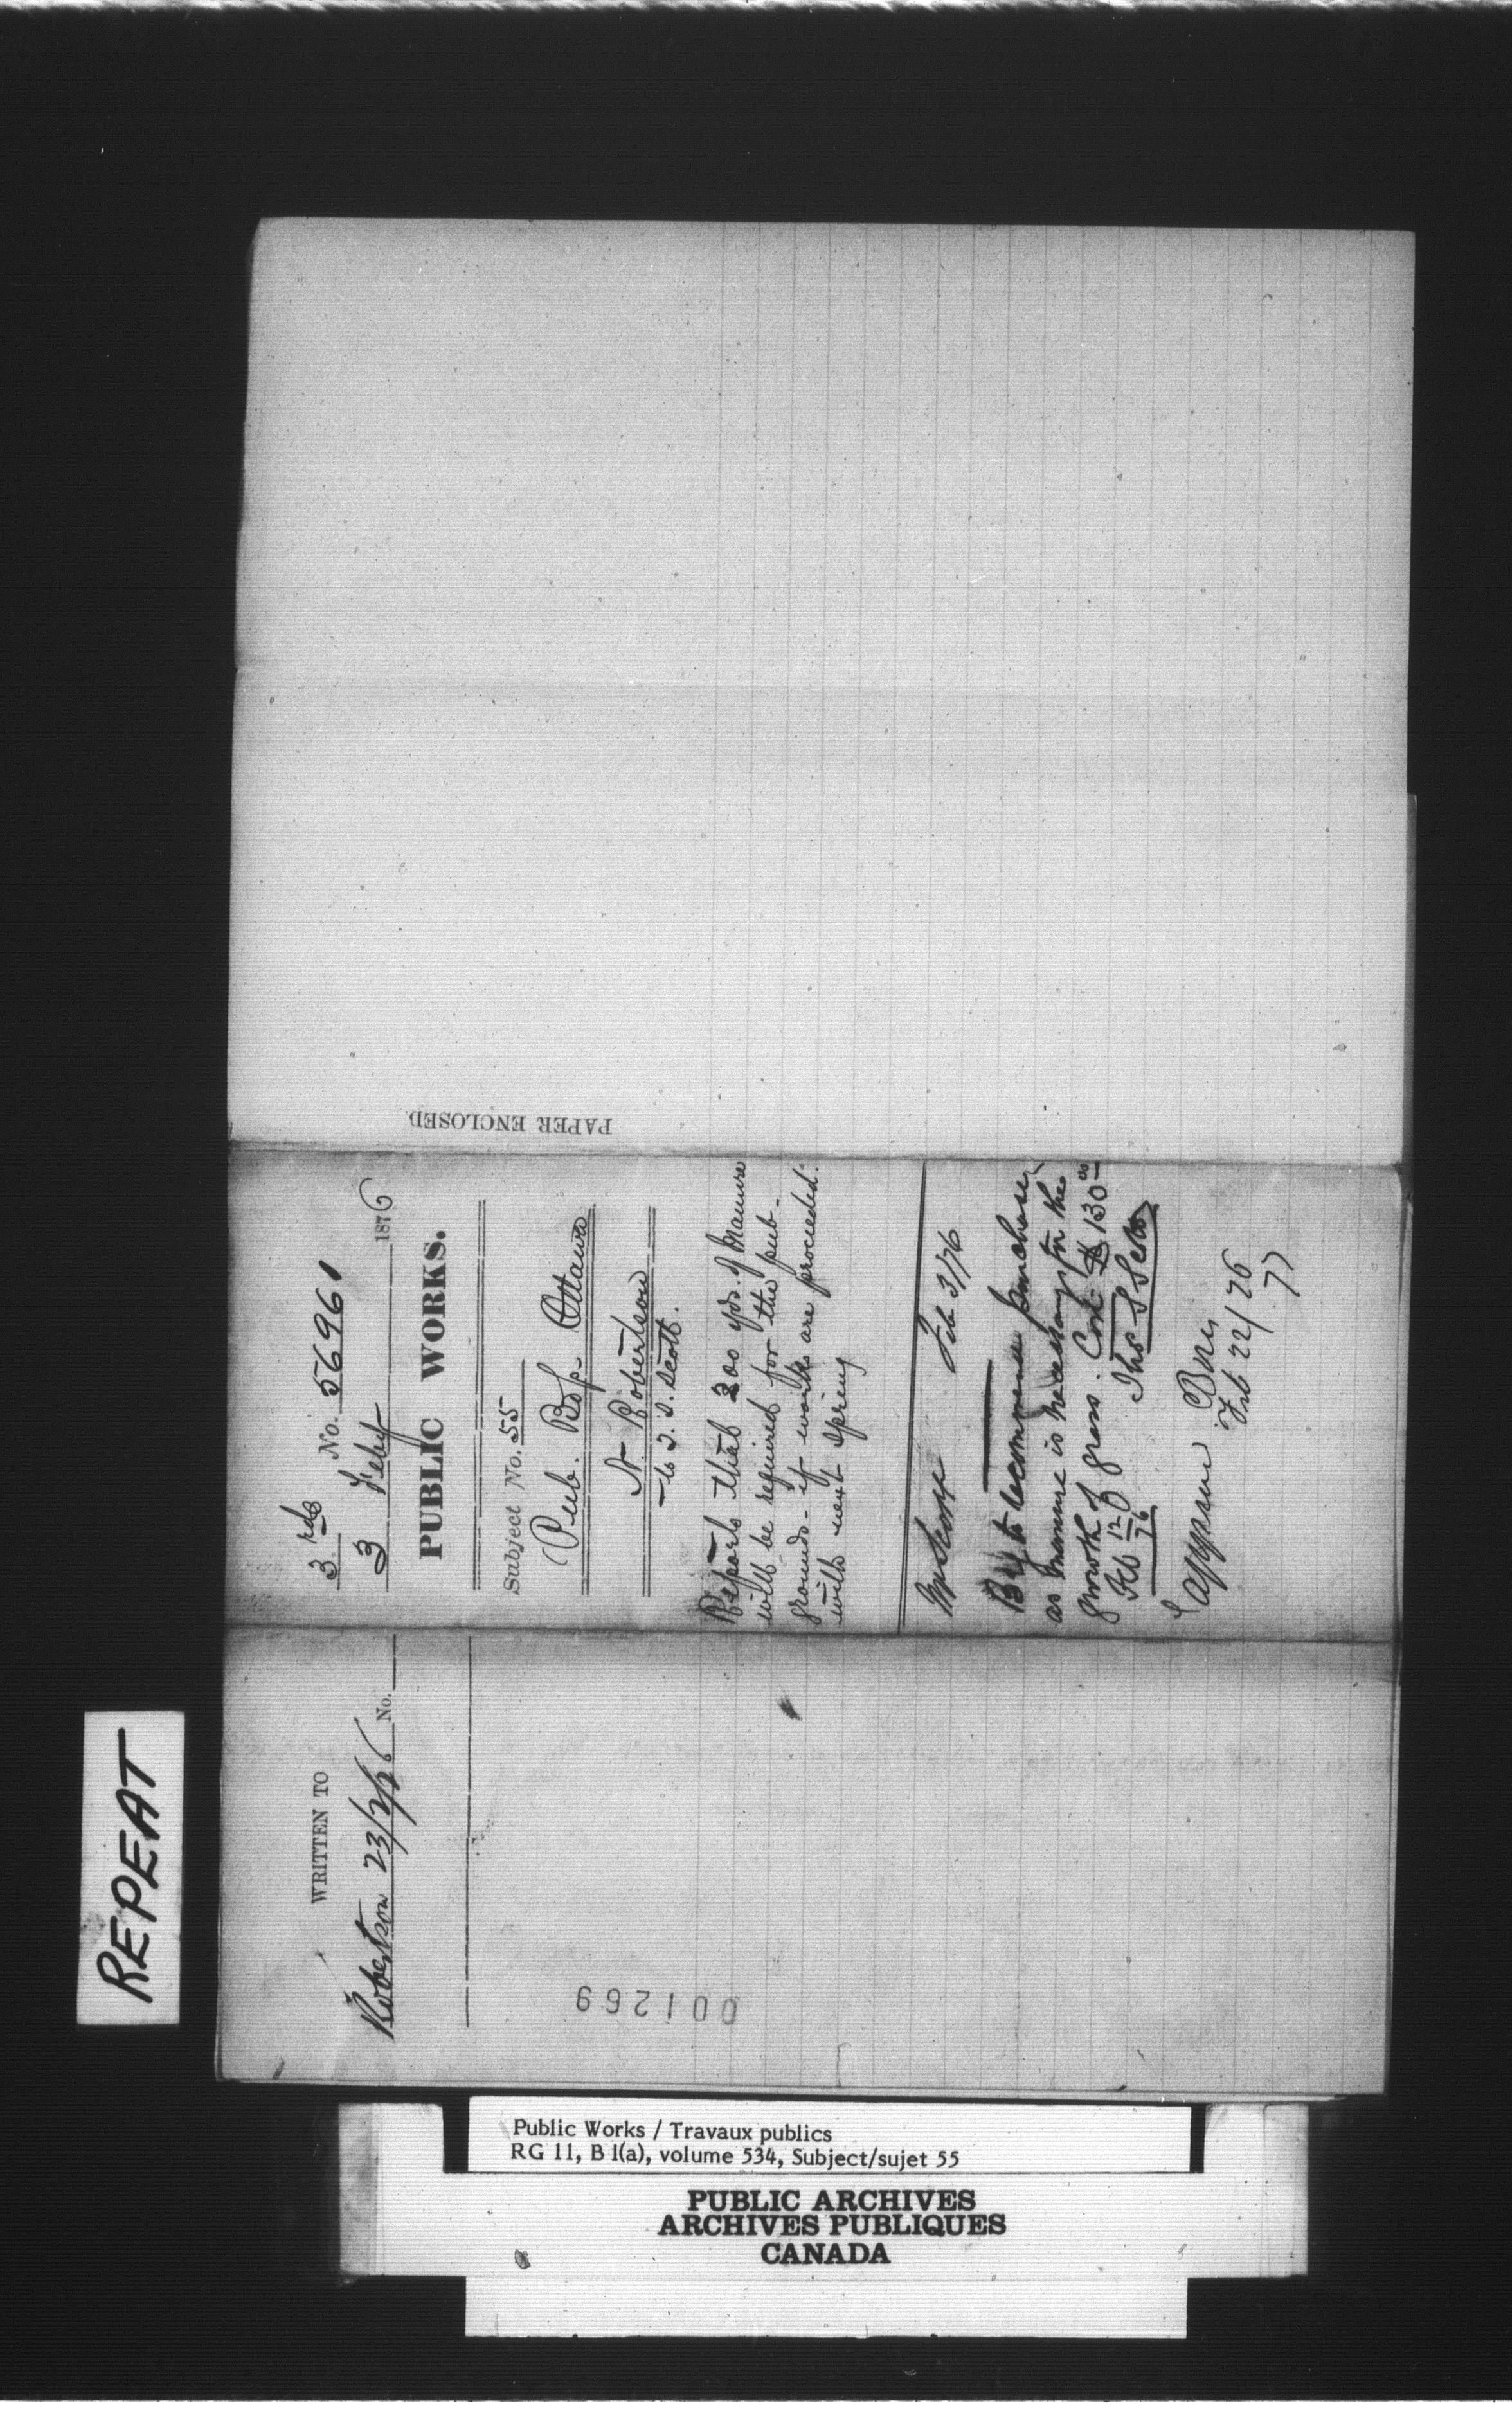 REPEAT
WRITTEN TO
Robertson 23/2/76 No.
001269
3 rd No. 56961
3 Feby 1876
PUBLIC WORKS.
Subject No. 55
Pub. Bgs Ottawa
A Robertson
to T. S. Scott.
Reports that 200 yds. of Manure
will be required for the pub-
grounds - if works are proceeded
with next Spring
Mr Scott Feb 3/76
Beg to recommend purchase
as manure is necessary for the
growth of grass. Cost $130 00
Feb 12 76 Thos S Scott
Approved
Feb 22/76
PAPER ENCLOSED.
Public Works / Travaux publics
RG 11, B 1(a), volume 534, Subject/sujet 55
PUBLIC ARCHIVES
ARCHIVES PUBLIQUES
CANADA